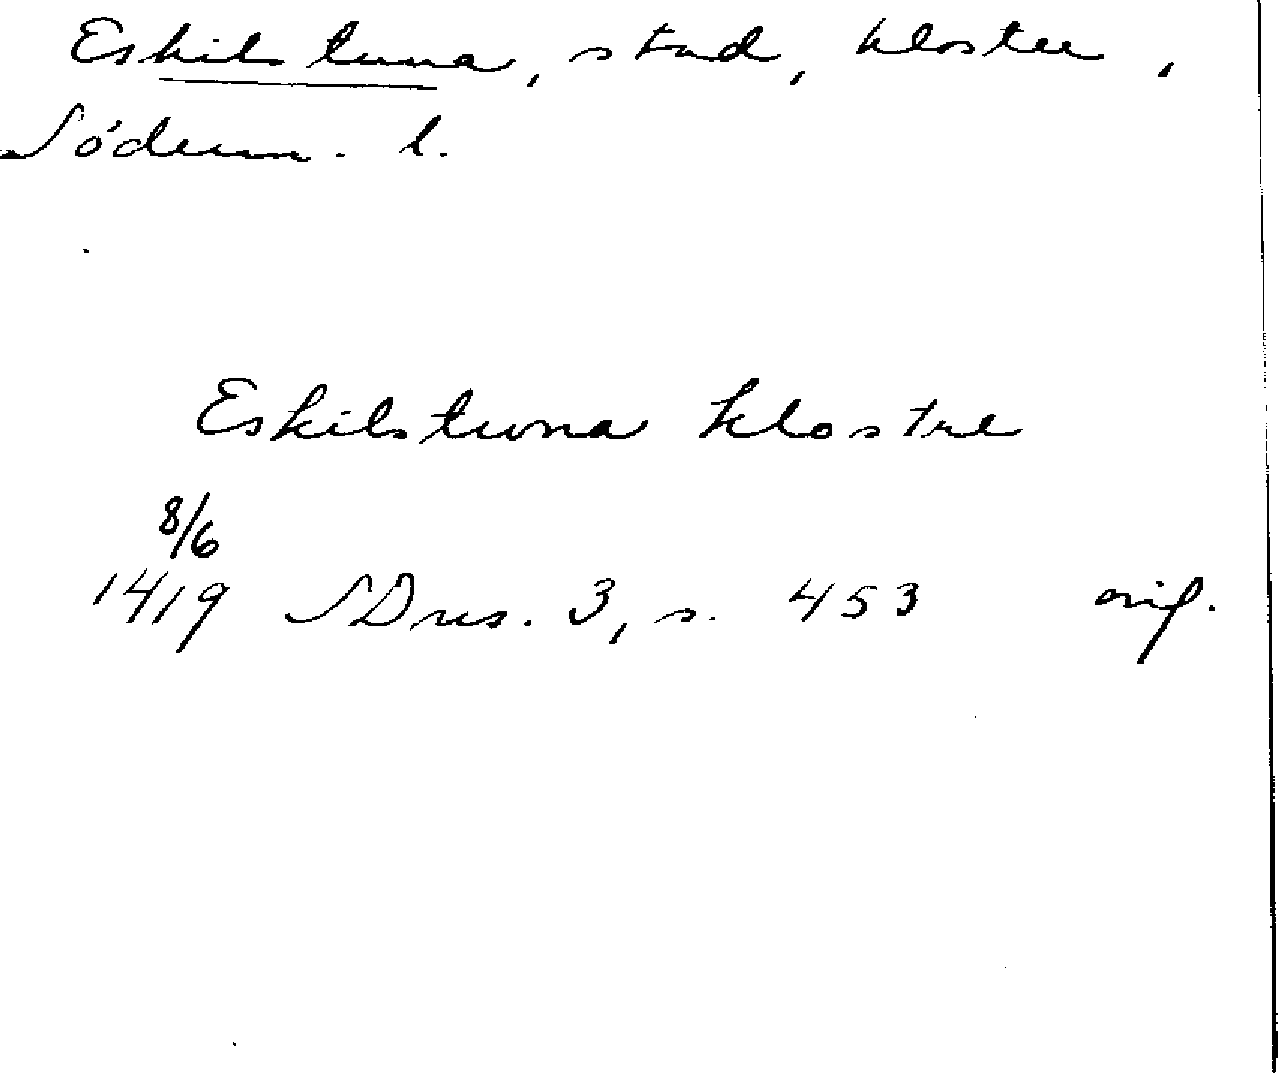 Eskilstuna, stad, kloster,
Söderm. l.
Eskilstuna klostre
8/6
1419 SDns. 3, s. 453 orig.